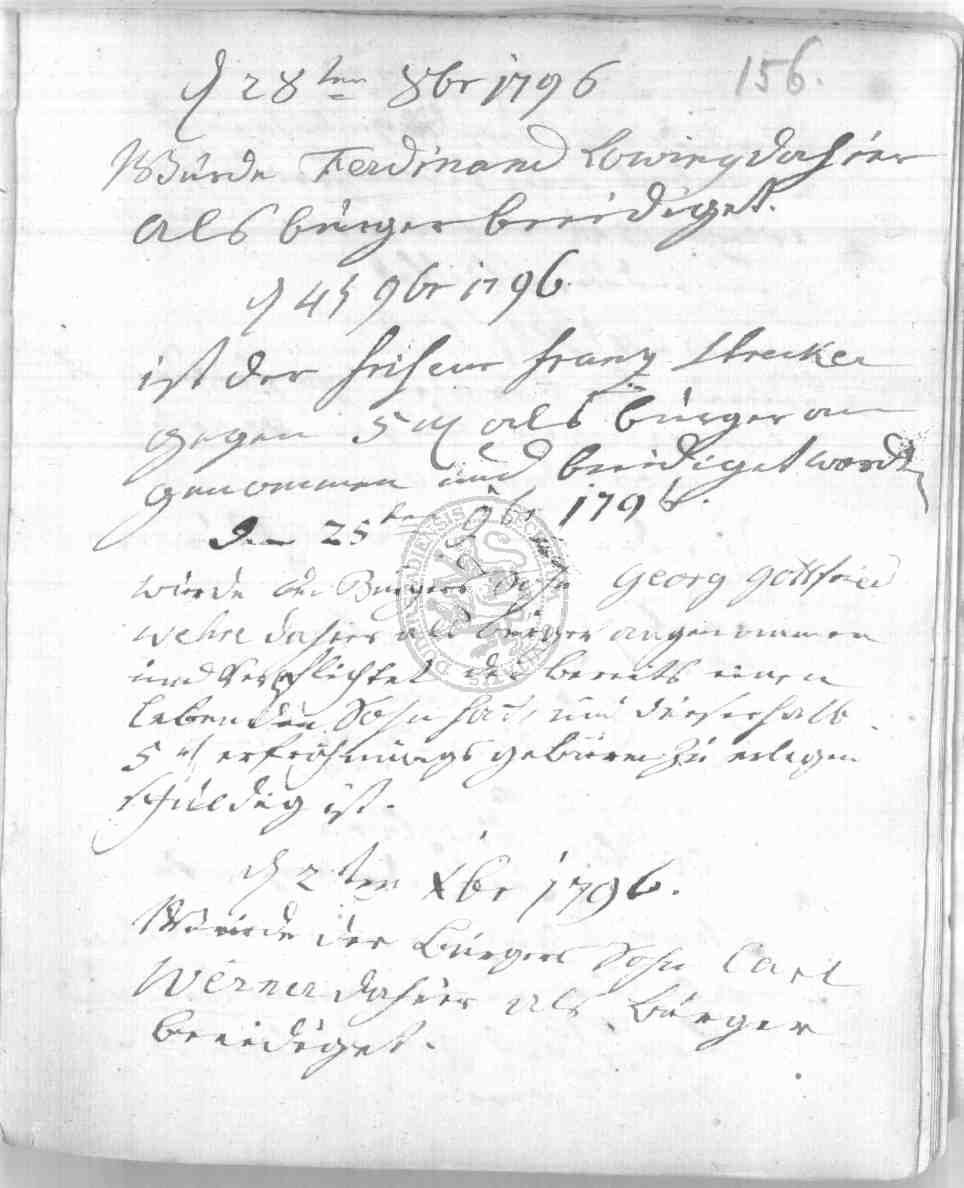 156.
d 28ten 8br 1796
Würde Ferdinand Lowing dahier
als bürger beeidiget.
d 4t 9br 1796
ist der friseur frantz Strecker
gegen 5 als bürger an
genommen und beeidiget word
den 25ten 9br 1796.
würde der Burgers Sohn Georg gottfried
Wehre dahier als bürger angenommen
und verpflichtet der bereits einen
lebenden Sohn hat, und dieserhalb
5 gebüren zu erlegen
schuldig ist.
d 2ten Xbr 1796.
Würde der Bürgers Sohn Carl
Werner dahier als Bürger
beeidiget.